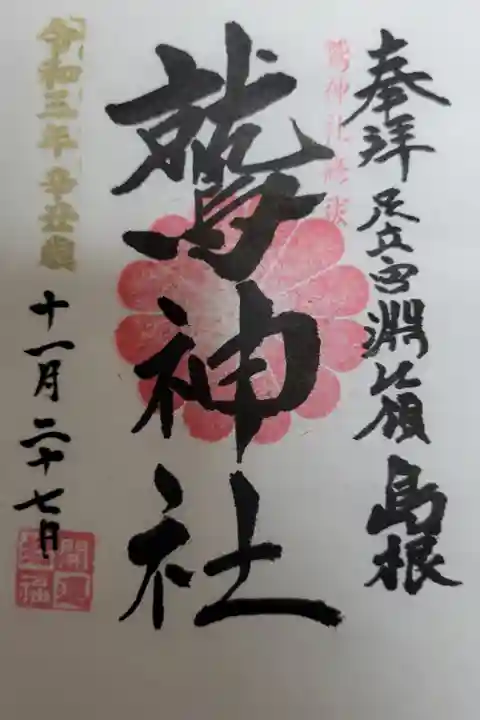 奉拝 足立宮 淵江領 島根
鷲神社
令和三年辛丑歳
十一月二十七日
開運